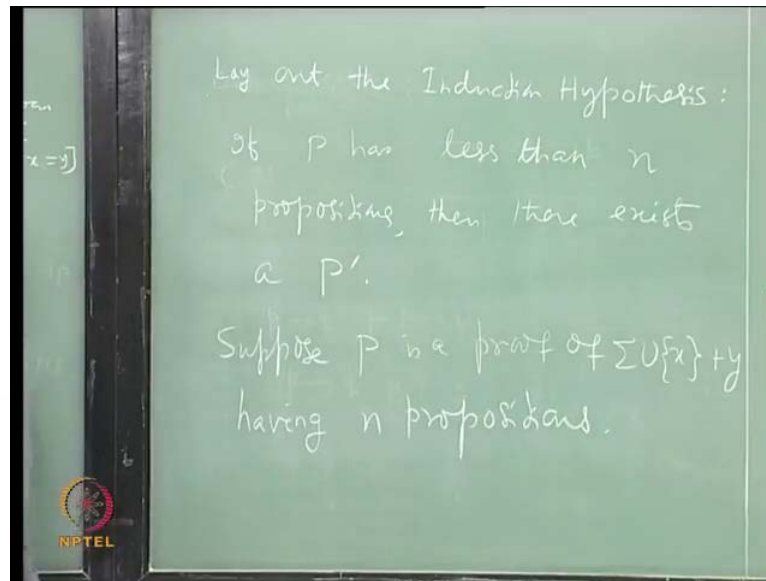 x = y]
Lay out the Induction Hypothesis :
If P has less than n
propositions, then there exists
a P'.
Suppose P is a proof of Σ∪{x} ⊢ y
having n propositions.
NPTEL